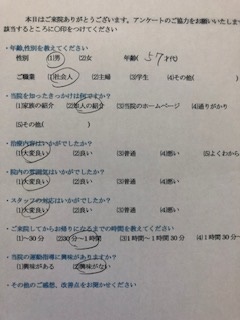 本日はご来院ありがとうございます。アンケートのご協力をお願いいたしま
該当するところに〇印をつけてください
・年齢,性別を教えてください
性別 (1)男 (2)女 年齢( 57才代)
ご職業 (1)社会人 (2)主婦 (3)学生 (4)その他(
・当院を知ったきっかけは何ですか?
(1)家族の紹介 (2)知人の紹介 (3)当院のホームページ (4)通りがかり
(5)その他( )
・治療内容はいかがでしたか?
(1)大変良い (2)良い (3)普通 (4)悪い (5)よくわから
・院内の雰囲気はいかがでしたか?
(1)大変良い (2)良い (3)普通 (4)悪い
・スタッフの対応はいかがでしたか?
(1)大変良い (2)良い (3)普通 (4)悪い
・ご来院してからお帰りになるまでの時間を教えてください
(1)~30分 (2)30分~1時間 (3)1時間~1時間30分 (4)1時間30分
・当院の運動指導に興味がありますか?
(1)興味がある (2)興味がない
・その他のご感想、改善点をお聞かせください